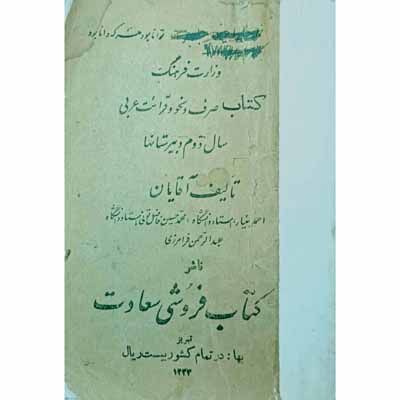 توانا بود هر که دانا بود
وزارت فرهنگ
کتاب صرف و نحو و قرائت عربی
سال دوم دبیرستانها
تألیف آقایان
احمد بهمنیار استاد دانشگاه، محمدحسین فاضل تونی استاد دانشگاه
عبدالرحمن فرامرزی
ناشر
کتاب فروشی سعادت
تبریز
بها: در تمام کشور بیست ریال